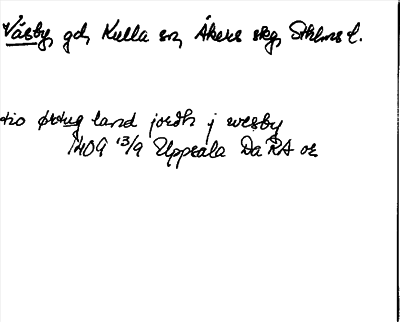 Väsby, gd, Kulla sn, Åkers skg, Sthlms l.
tio ørtug land jordh j wesby
1409 13/9 Uppsala Da RA or